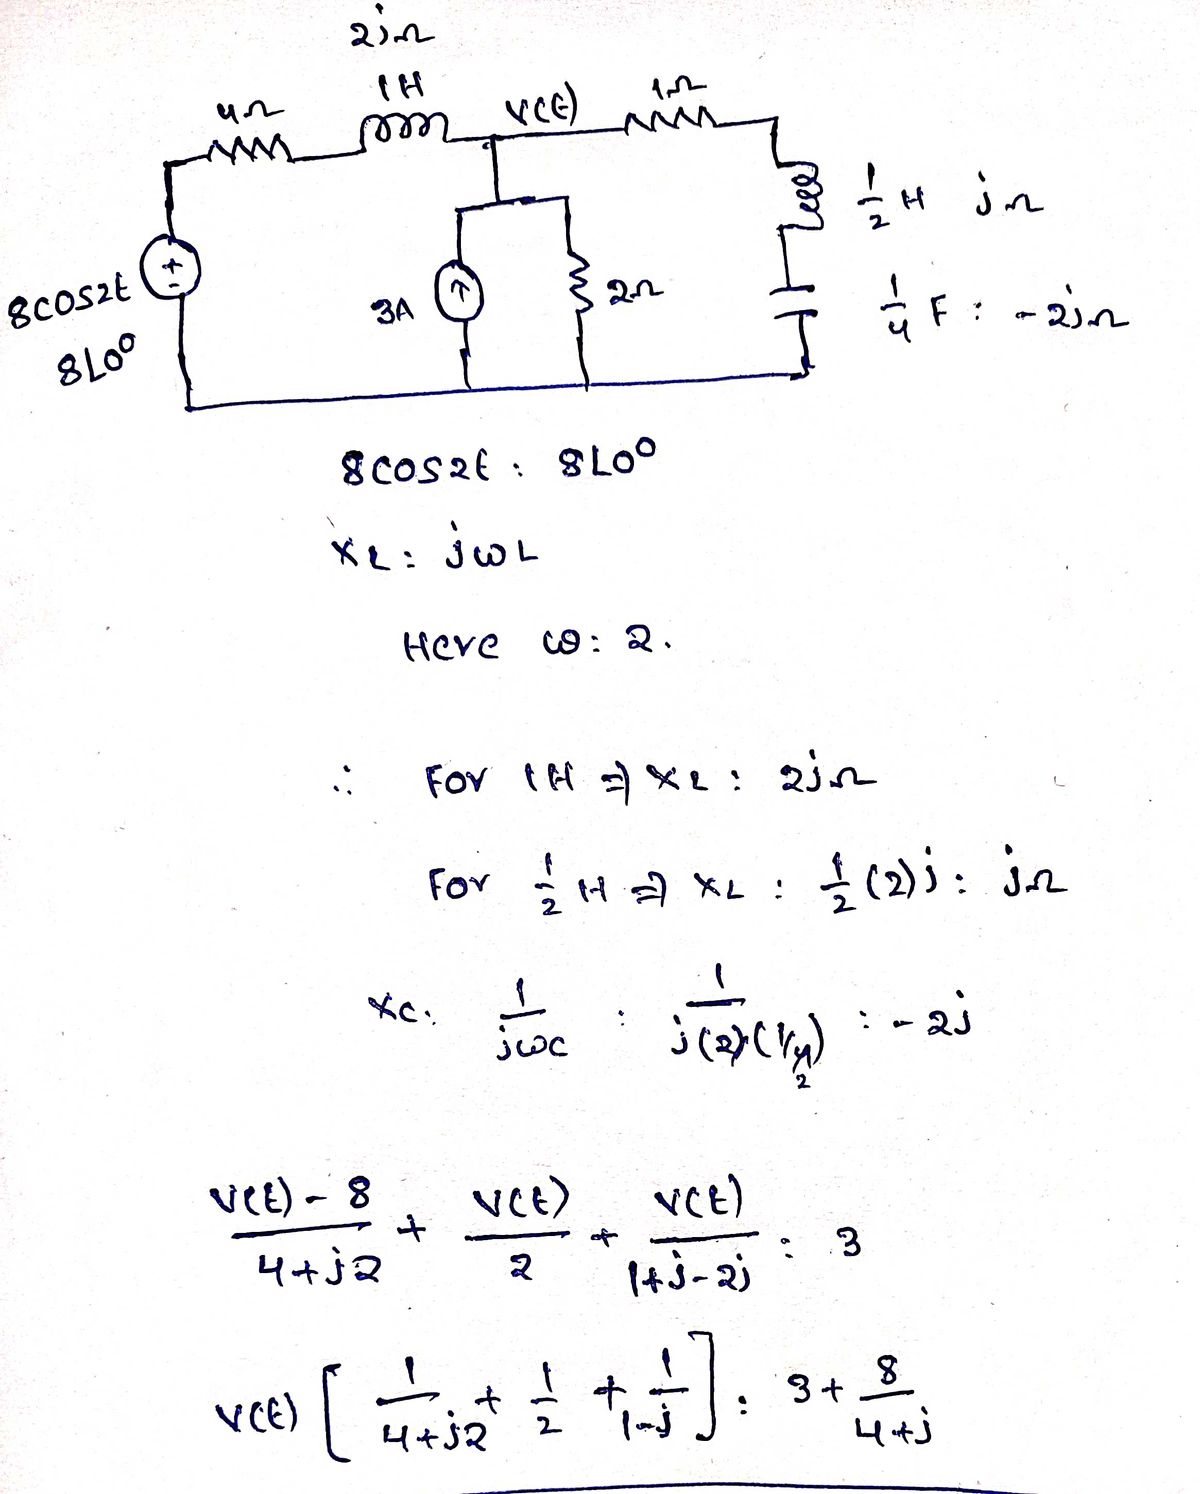 2jΩ
1H
4Ω
V(t)
1Ω
1/2 H jΩ
8cos2t
8∠0°
3A
2Ω
1/4 F : -2jΩ
8cos2t : 8∠0°
XL : jωL
Here ω : 2.
∴ For 1H ⇒ XL : 2jΩ
For 1/2 H ⇒ XL : 1/2 (2)j : jΩ
XC : 1/jωC : 1/j(2)(1/4) 2 : -2j
V(t) - 8 / 4+j2 + V(t) / 2 + V(t) / 1+j-2j : 3
V(t) [ 1/4+j2 + 1/2 + 1/1-j ] : 3 + 8/4+j